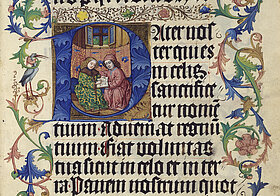 PAter nos
ter qui es
in celis
sanctifice
tur nomē
tuum adueniat regnū
tuum fiat voluntas
tua sicut in celo et in ter
ra Panem nostrum quot